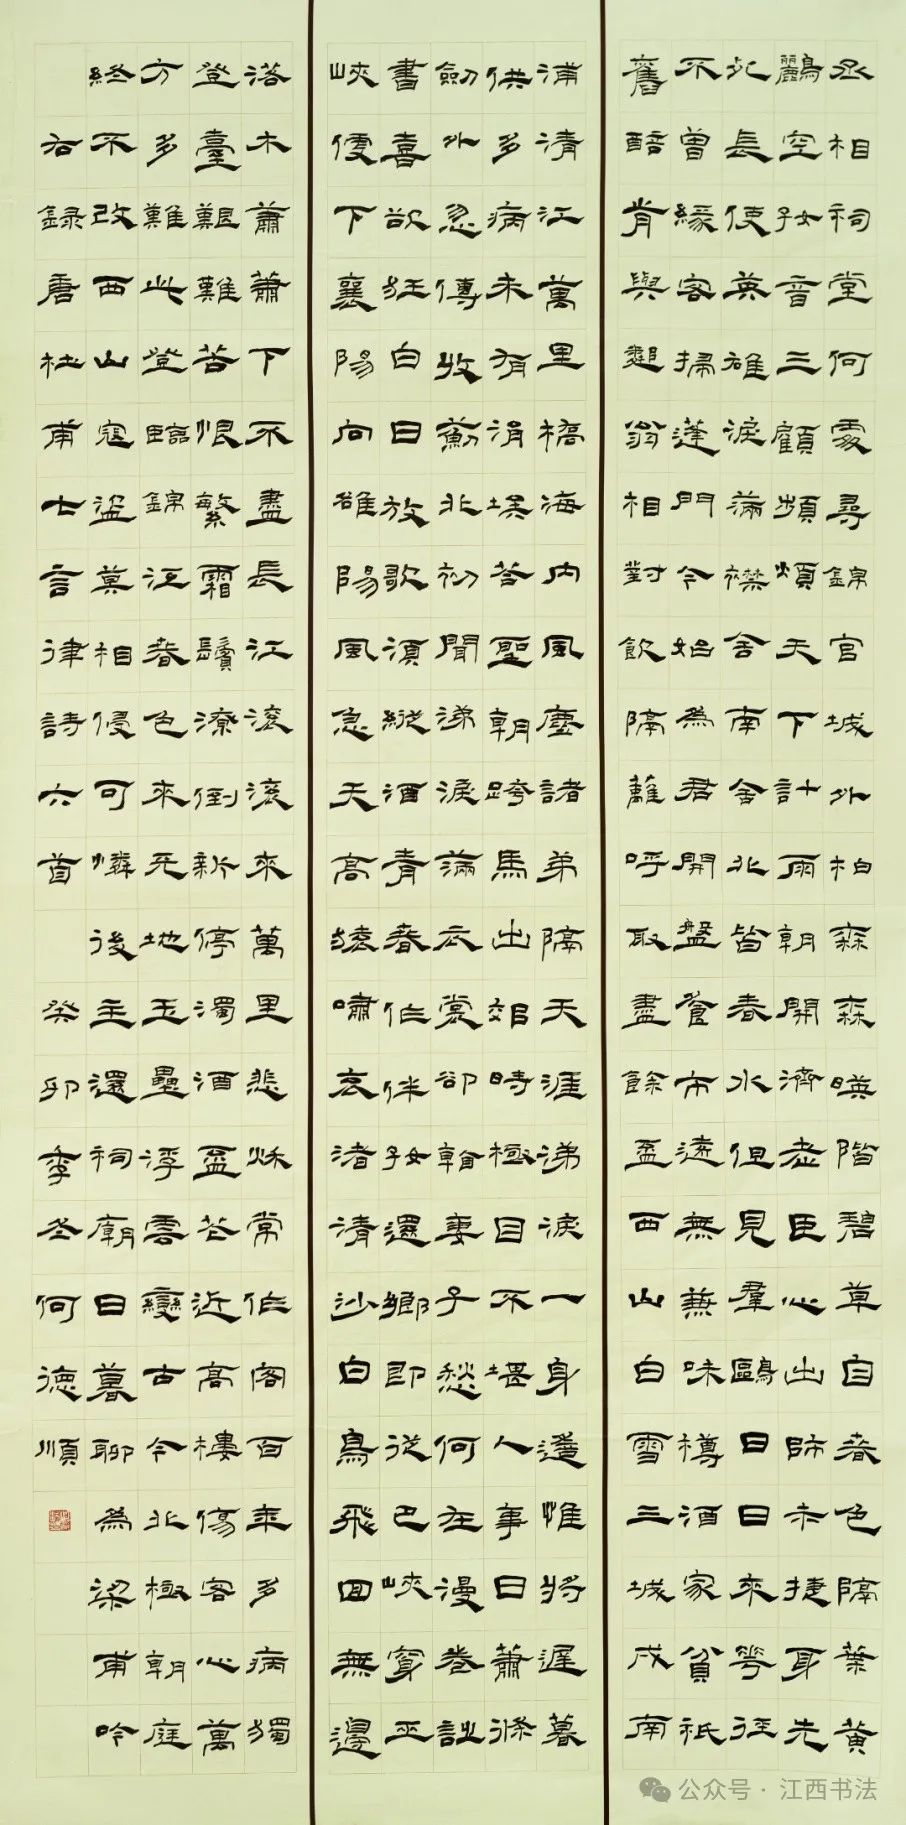 丞相祠堂何處尋錦官城外柏森森暎階碧草自春色隔葉黃
鸝空好音三顧頻煩天下計兩朝開濟老臣心出師未捷身先
死長使英雄淚滿襟舍南舍北皆春水但見羣鷗日日來花徑
不曾緣客掃蓬門今始為君開盤飧市遠無兼味樽酒家貧祇
舊醅肯與鄰翁相對飲隔籬呼取盡餘盃西山白雪三城戍南
浦清江萬里橋海內風塵諸弟隔天涯涕淚一身遙惟將遲暮
供多病未有涓埃答聖朝跨馬出郊時極目不堪人事日蕭條
劍外忽傳收薊北初聞涕淚滿衣裳卻看妻子愁何在漫卷詩
書喜欲狂白日放歌須縱酒青春作伴好還鄉即從巴峽穿巫
峽便下襄陽向雒陽風急天高猿嘯哀渚清沙白鳥飛回無邊
落木蕭蕭下不盡長江滾滾來萬里悲秋常作客百年多病獨
登臺艱難苦恨繁霜鬢潦倒新停濁酒盃花近高樓傷客心萬
方多難此登臨錦江春色來天地玉壘浮雲變古今北極朝庭
終不改西山寇盜莫相侵可憐後主還祠廟日暮聊為梁甫吟
右錄唐杜甫七言律詩六首 癸卯季冬何德順
公众号·江西书法